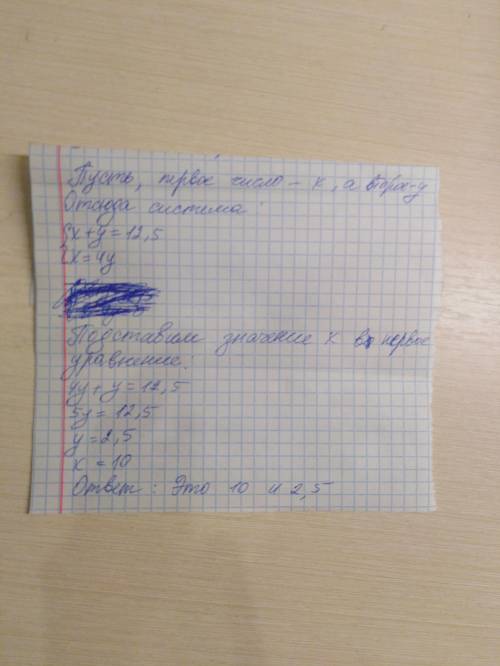 Пусть, первое число - x, а второе - y
Отсюда система
{x+y=12,5
{x=4y
Подставим значение x в первое
уравнение:
4y+y=12,5
5y=12,5
y=2,5
x=10
Ответ: Это 10 и 2,5